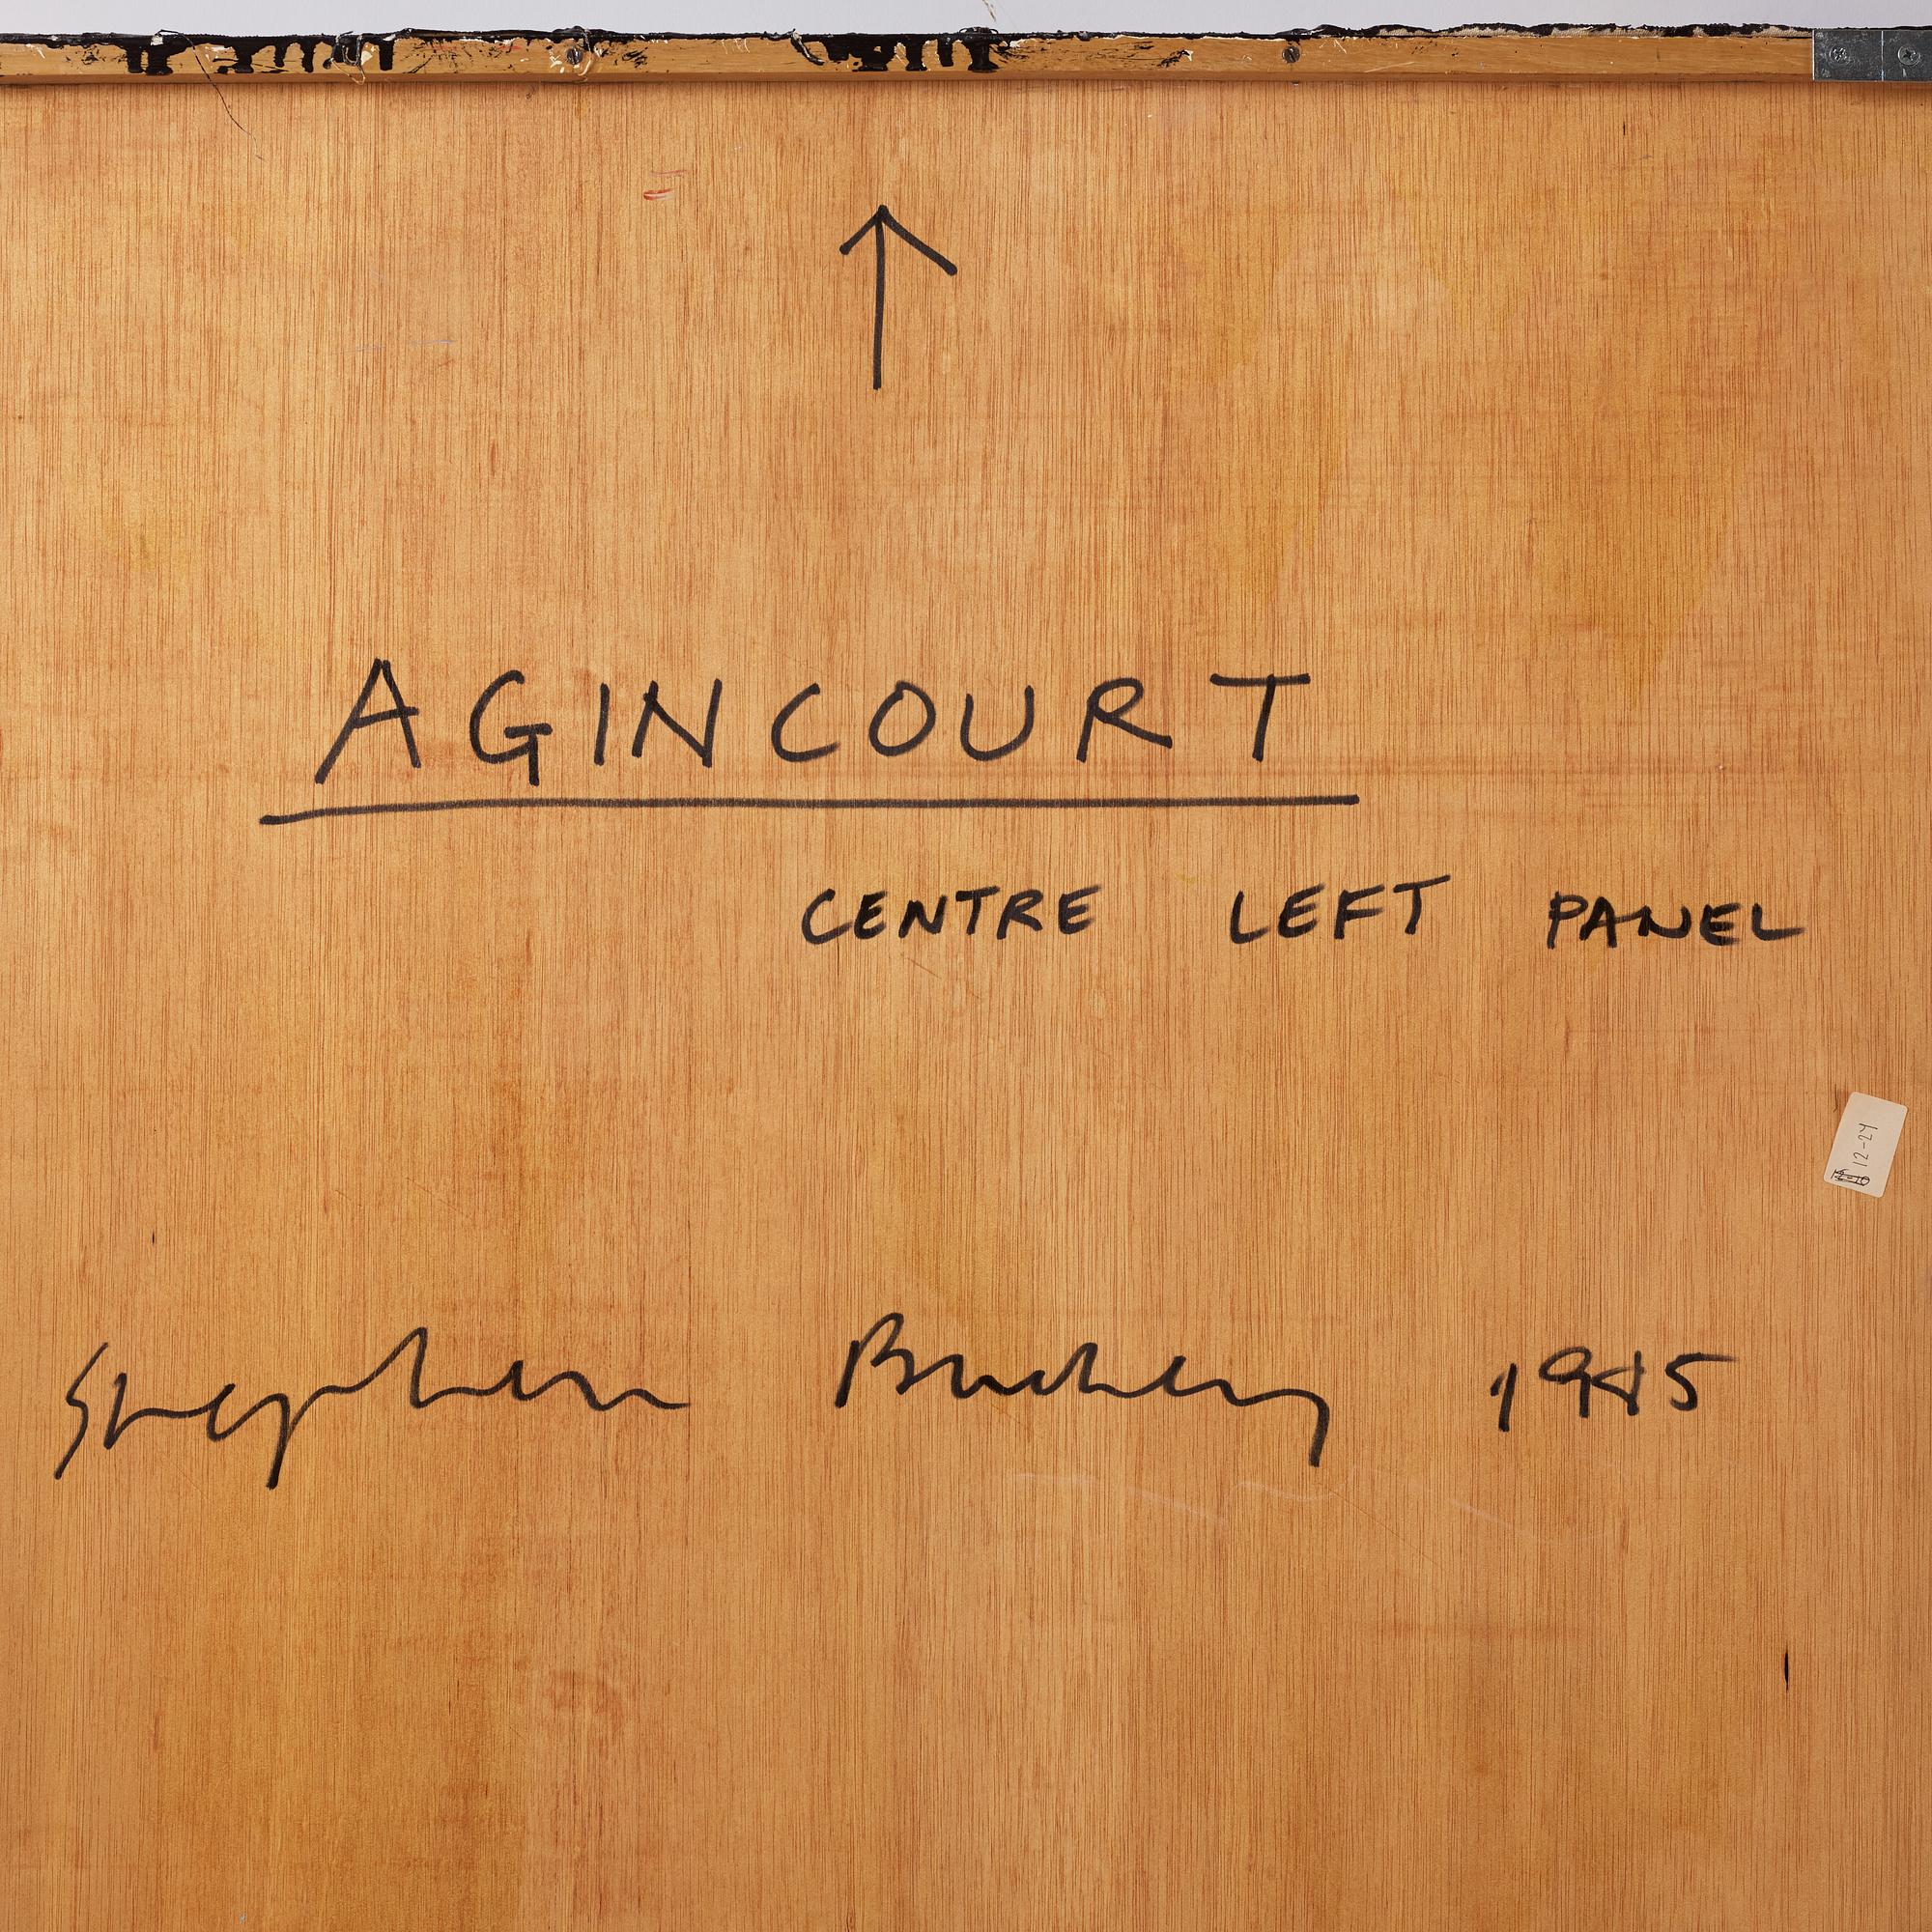 AGINCOURT
CENTRE LEFT PANEL
Stephen Buckley 1985
12-24